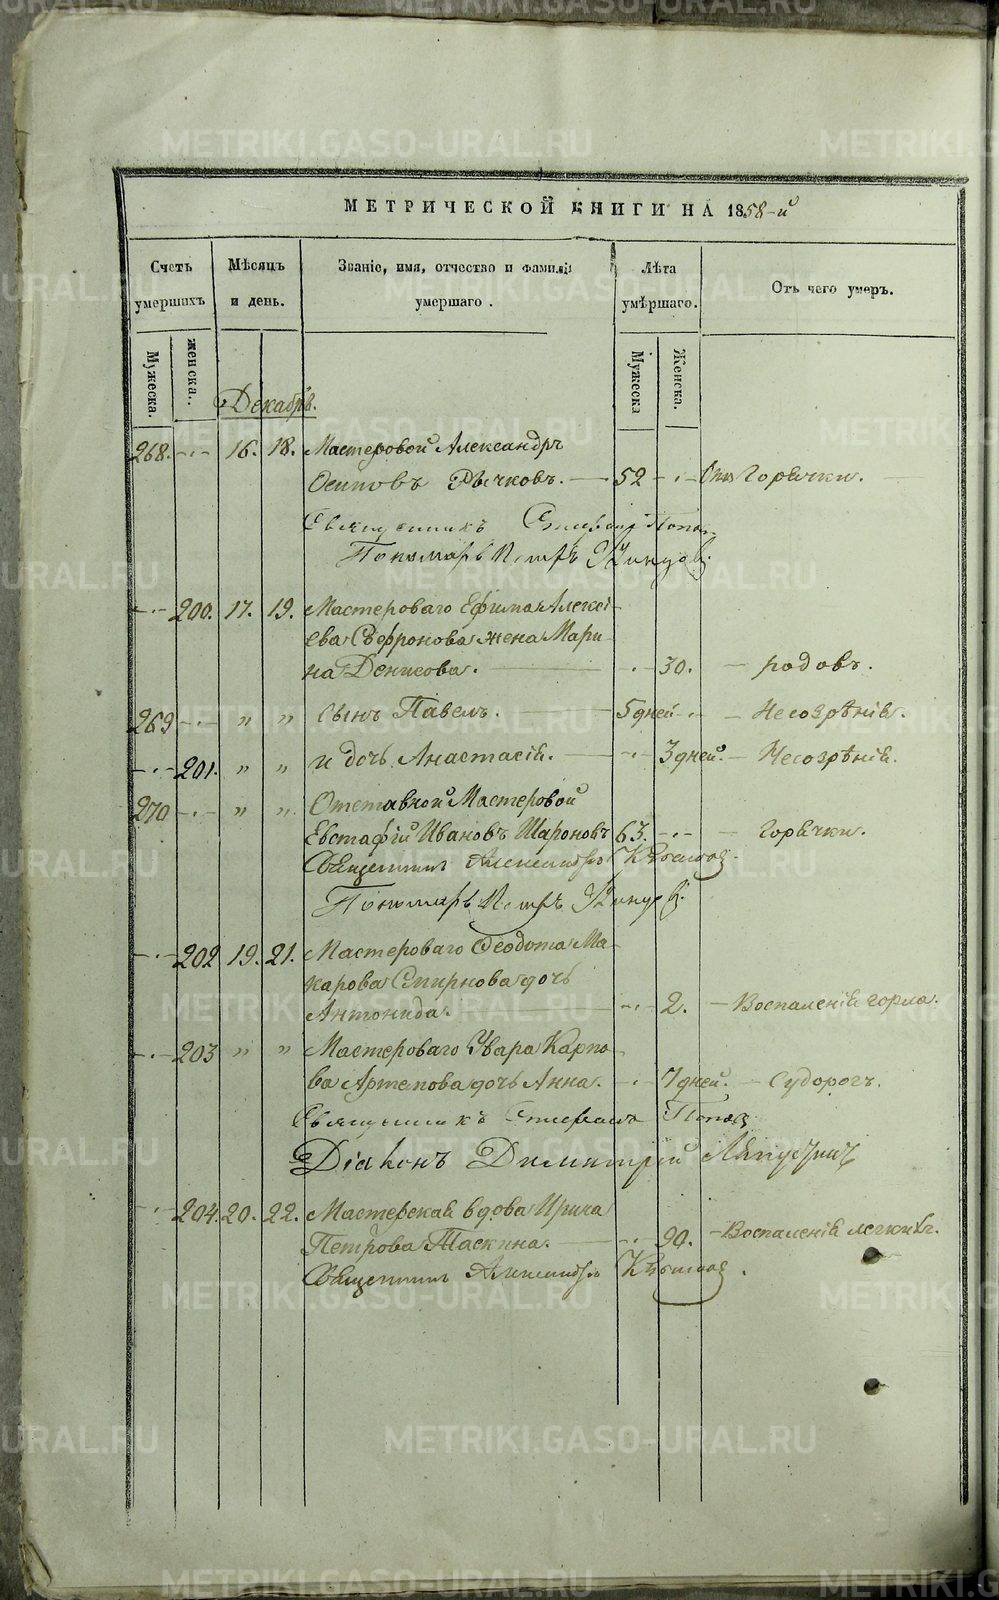 МЕТРИЧЕСКОЙ КНИГИ НА 1858-й
Счетъ умершихъ
Мѣсяцъ и день.
Званіе, имя, отчество и фамилія умершаго.
Лѣта умѣршаго.
Отъ чего умеръ.
Мужеска.
женска.
Мужеска
Женска.
Декабрь.
268. -·- 16. 18. Мастеровой Александръ
Осиповъ Рычковъ. — 52 -·- Отъ Горячки.
Священникъ Попов
Пономарь Петръ
-·- 200. 17. 19. Мастероваго Ефима Алексі-
ева Сафронова жена Мари
на Денисова. — -·- 30. — родовъ.
269 -·- " " сынъ Павелъ. — 5 дней -·- — Несозрѣнія.
-·- 201. " " и дочь Анастасія. — -·- 3 дней. — Несозрѣнія.
270 -·- " " Отставной Мастеровой
Евстафій Ивановъ Шароновъ 63. -·- — горячки.
Священникъ Александръ
Пономарь Петръ
-·- 202 19. 21. Мастероваго Ѳеодота Ма-
карова Смирнова дочь
Антонида. — -·- 2. — Воспаленія горла.
-·- 203 " " Мастероваго Увара Карпо-
ва Артемова дочь Анна. -·- 7 дней. — Судорогъ.
Священникъ Попов
Діаконъ Димитрій
-·- 204. 20. 22. Мастерская вдова Ирина
Петрова Таскина. — -·- 90. — Воспаленія легкихъ.
Священникъ Александръ
METRIKI.GASO-URAL.RU